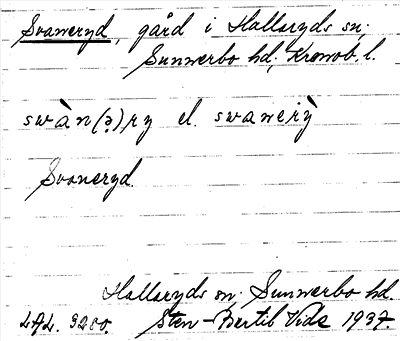 Svaneryd, gård i Hallaryds sn;
Sunnerbo hd, Kronob. l.
swàn(ə)ry el. swanerỳ
Svaneryd.
Hallaryds sn, Sunnerbo hd.
LAL. 3200. Sten-Bertil Vide 1937.